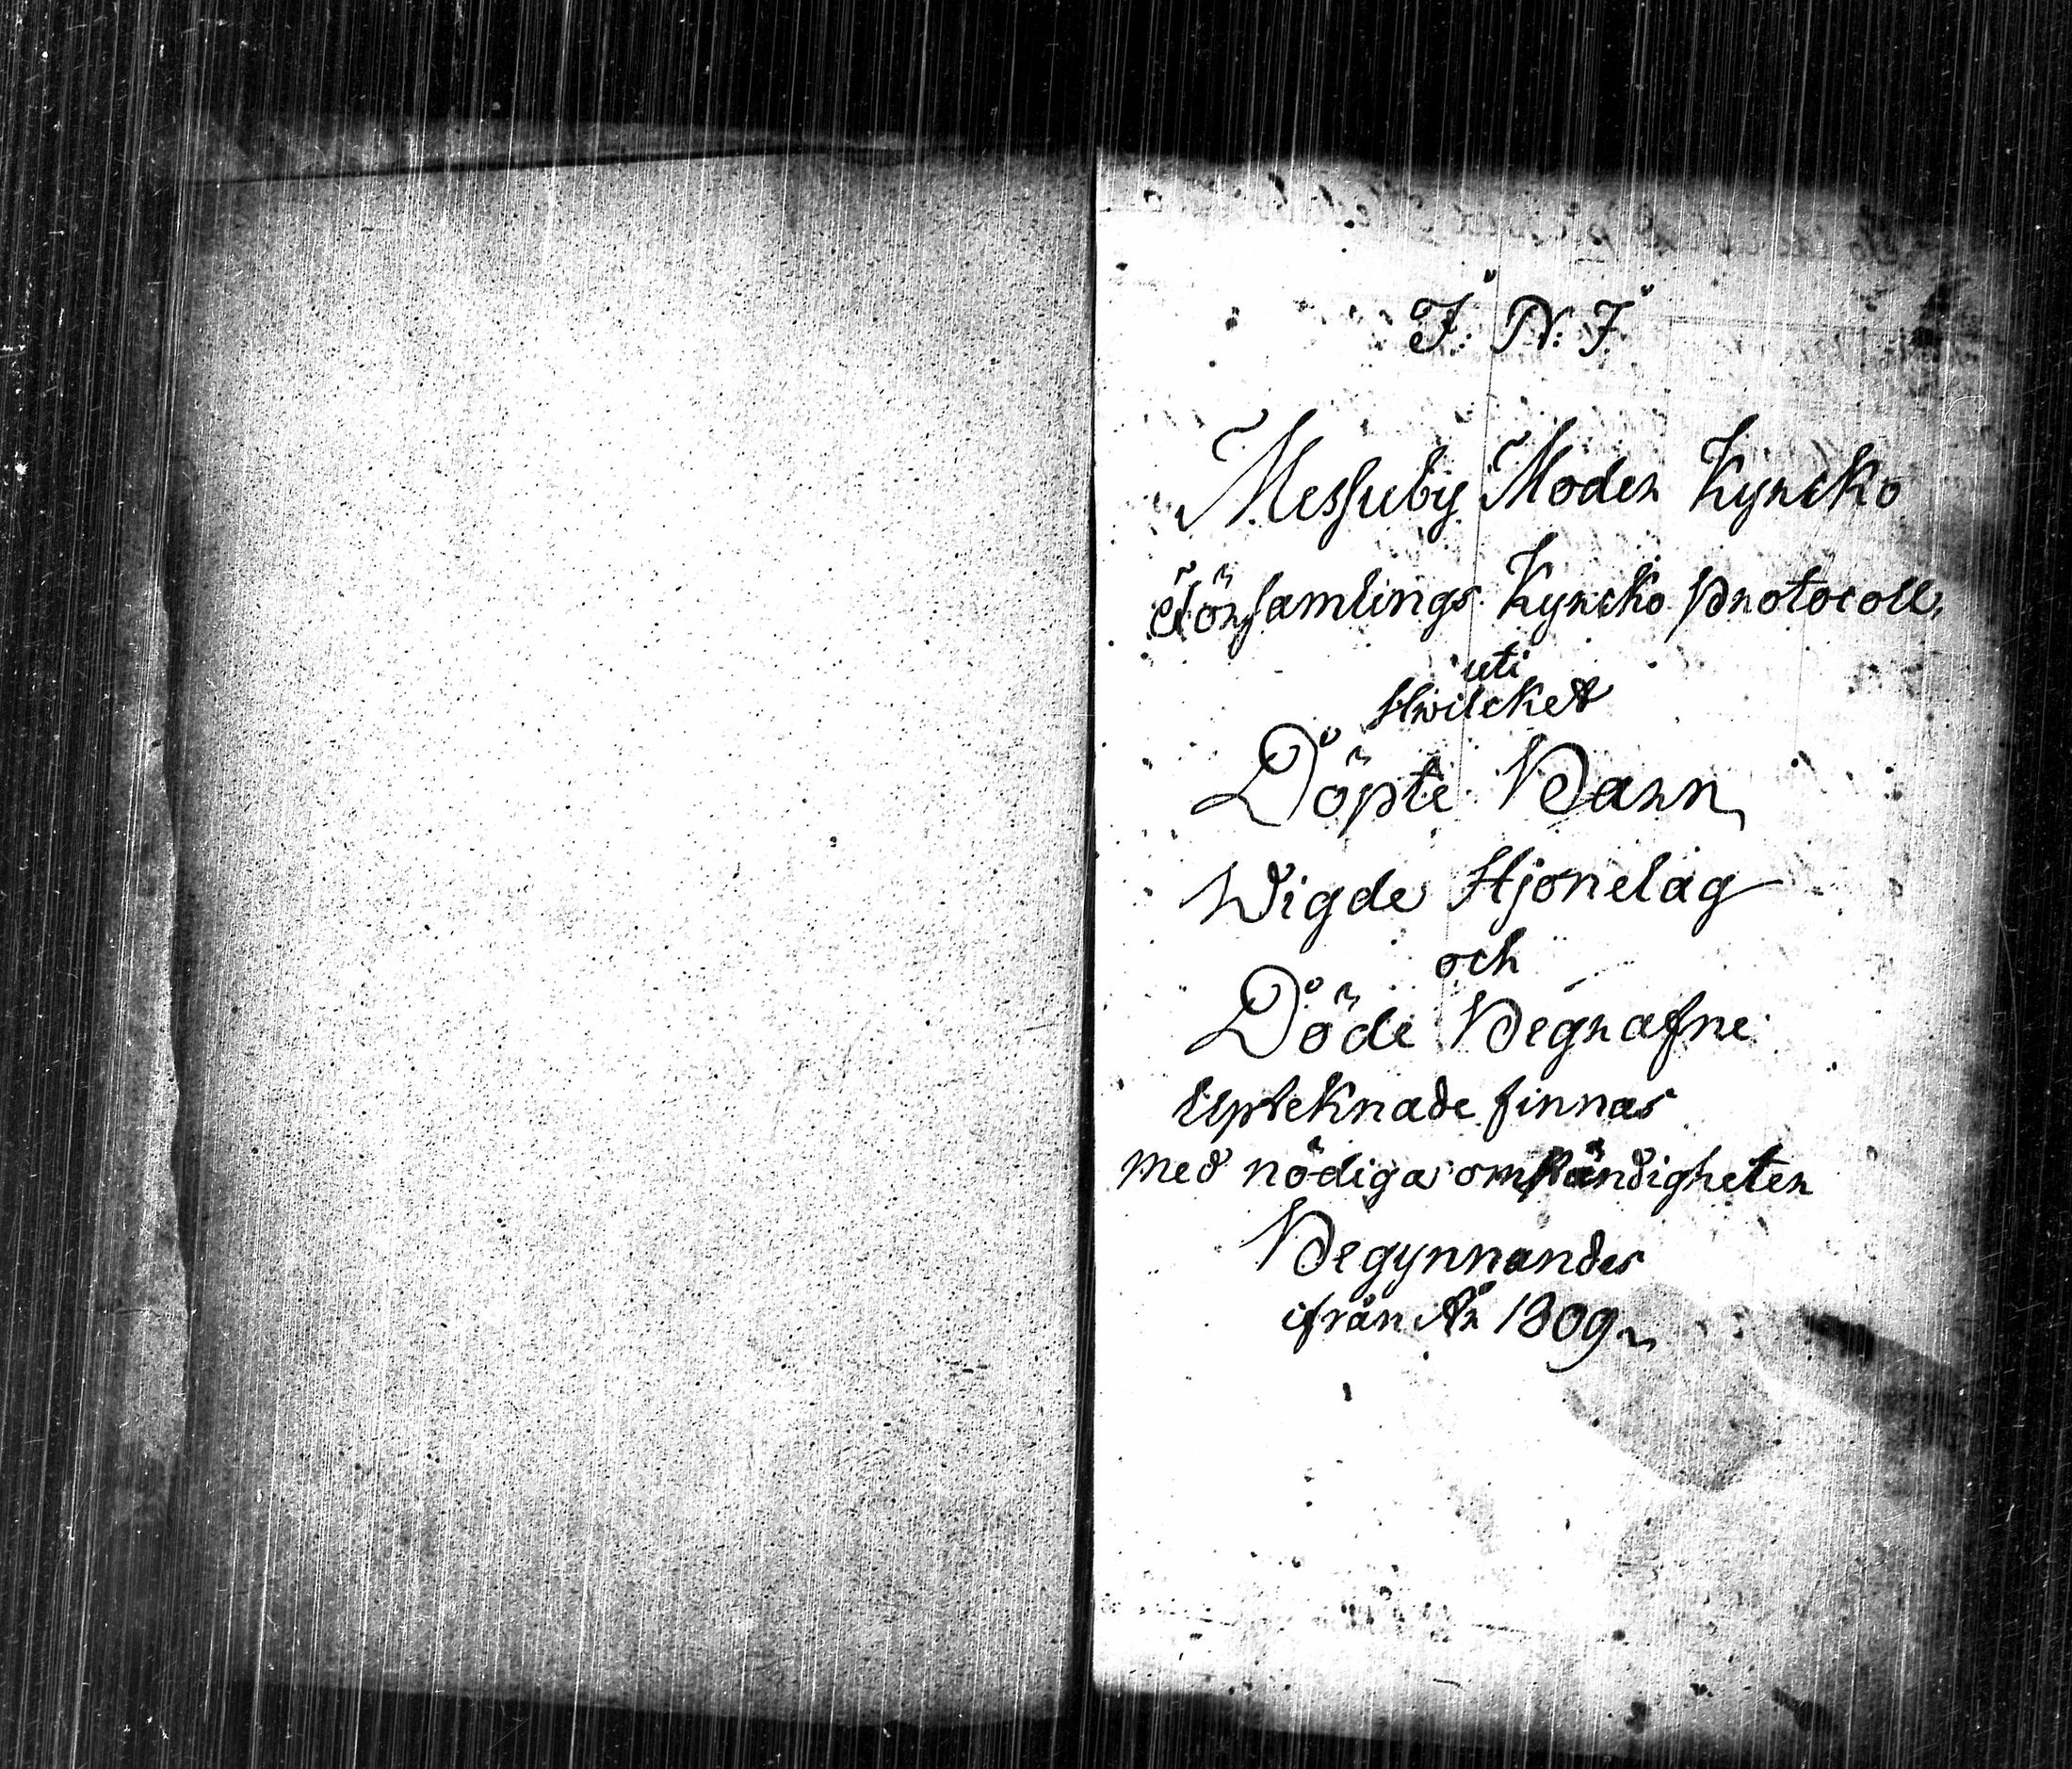 I. N. J.
Messuby Moder Kyrcko
Församlings Kyrcko Protocoll,
uti
Hwilcket
Döpte Barn
Wigde Hjonelag
och
Döde Begrafne
Upteknade finnas
med nödiga omständigheter
Begynnandes
ifrån År 1809